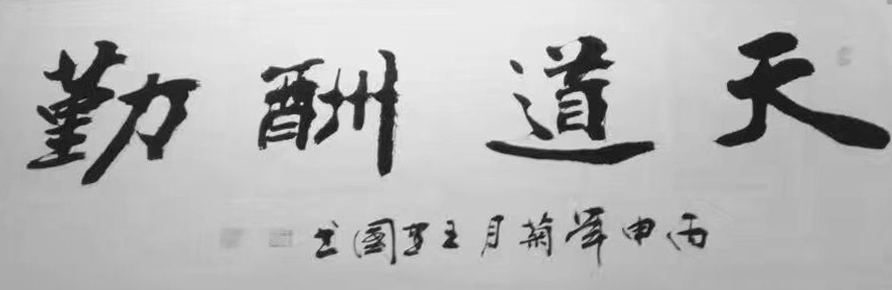 天道酬勤
丙申年菊月王立國书